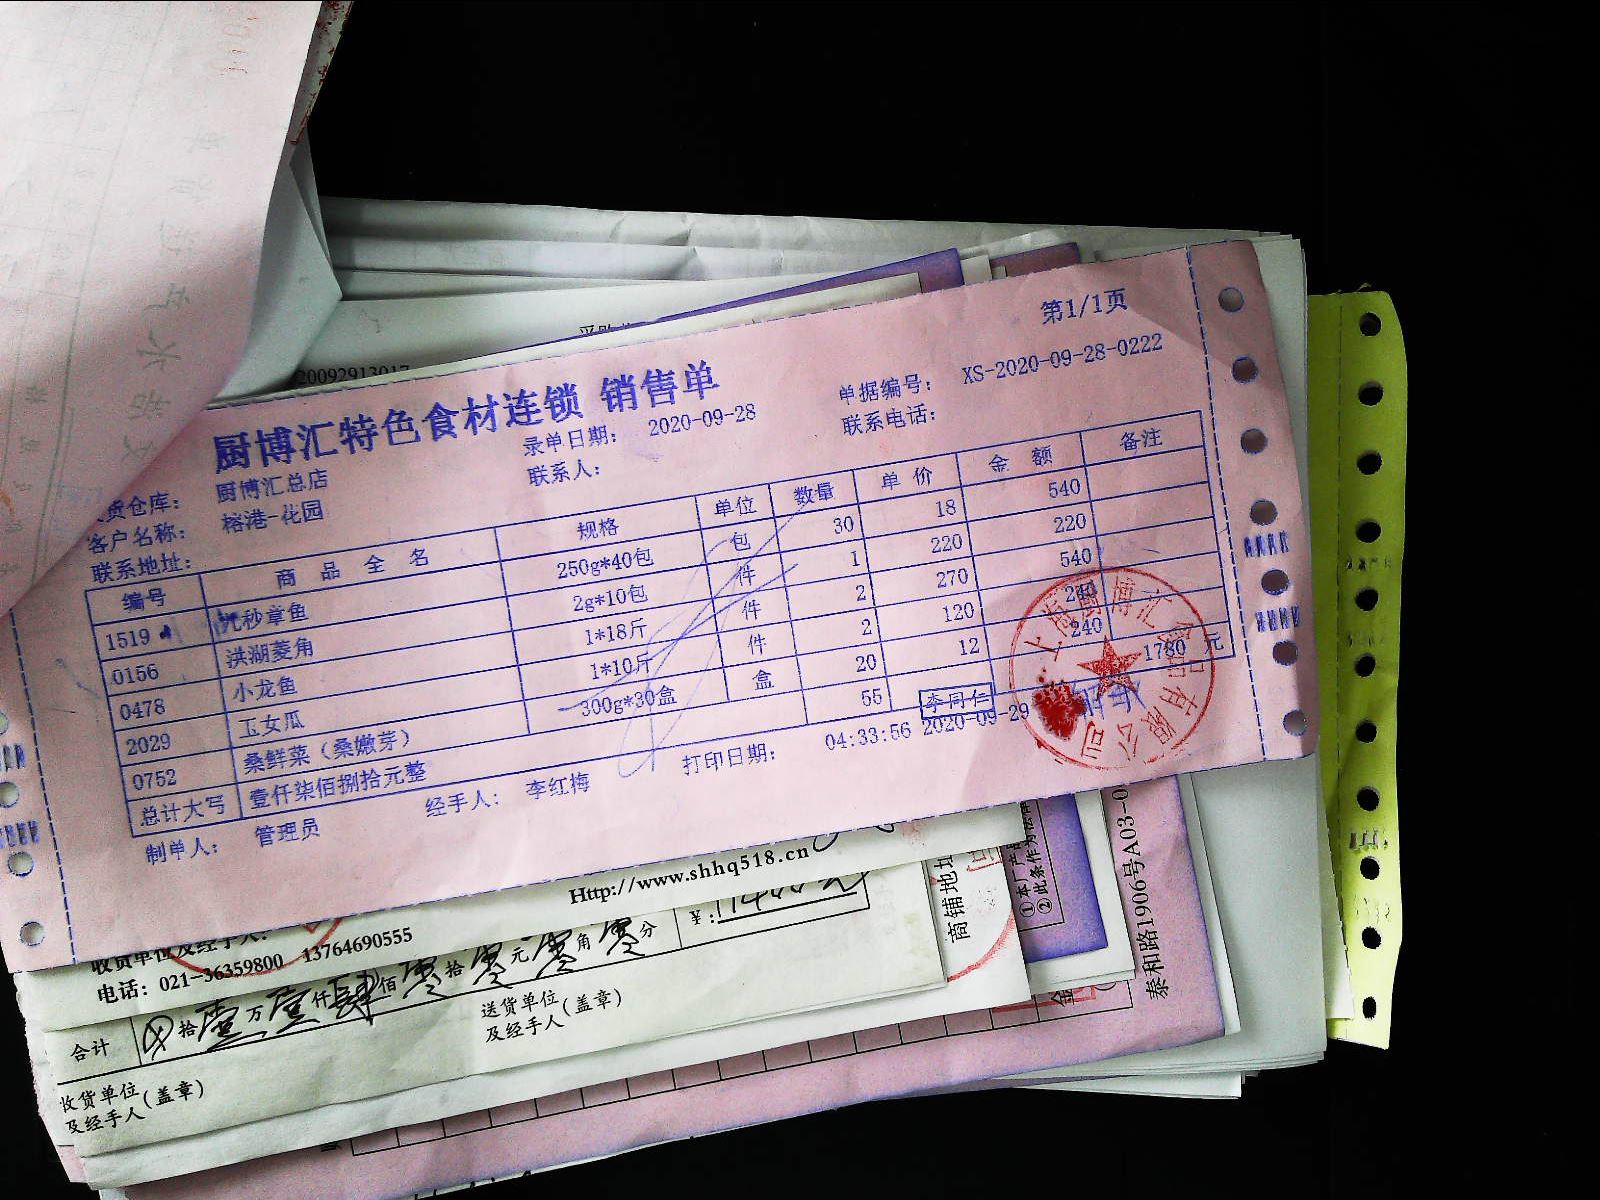 第1/1页
厨博汇特色食材连锁 销售单
货仓库： 厨博汇总店 录单日期： 2020-09-28 单据编号： XS-2020-09-28-0222
客户名称： 榕港-花园 联系人： 联系电话：
联系地址：
编号 商品全名 规格 单位 数量 单价 金额 备注
1519 秒章鱼 250g*40包 包 30 18 540
0156 洪湖菱角 2g*10包 件 1 220 220
0478 小龙鱼 1*18斤 件 2 270 540
2029 玉女瓜 1*10斤 件 2 120 240
0752 桑鲜菜（桑嫩芽） 300g*30盒 盒 20 12 240
总计大写 壹仟柒佰捌拾元整 55 1780 元
制单人： 管理员 经手人： 李红梅 打印日期： 04:33:56 2020-09-29
李同仁
上海厨博汇食品有限公司
20092913017
Http://www.shhq518.cn
收货单位及经手人：
电话：021-36359800 13764690555
合计 ⊗拾壹万壹仟肆佰零拾零元零角零分 ¥:
送货单位
及经手人(盖章)
收货单位
及经手人(盖章)
商铺地址
①本厂产品
②此条作为法律
泰和路1906号A03-0
金